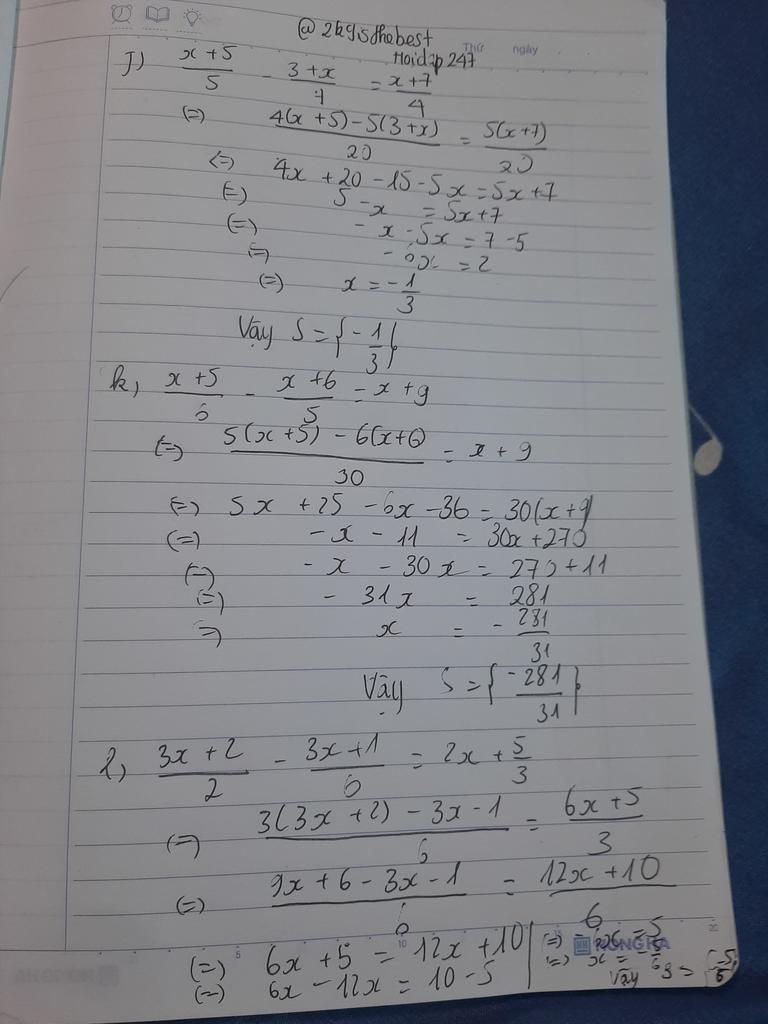 @2kgisthebest
Thứ ngày
Hoidap247
J) \frac{x+5}{5} - \frac{3+x}{4} = \frac{x+7}{4}
(=) \frac{4(x+5)-5(3+x)}{20} = \frac{5(x+7)}{20}
(=) 4x+20-15-5x=5x+7
(=) 5-x = 5x+7
(=) -x-5x = 7-5
(=) -6x = 2
(=) x = -\frac{1}{3}
Vậy S={-\frac{1}{3}}
k, \frac{x+5}{6} - \frac{x+6}{5} = x+9
(=) \frac{5(x+5)-6(x+6)}{30} = x+9
(=) 5x+25-6x-36=30(x+9)
(=) -x-11 = 30x+270
(=) -x-30x=270+11
(=) -31x = 281
(=) x = -\frac{281}{31}
Vậy S={-\frac{281}{31}}
l, \frac{3x+2}{2} - \frac{3x+1}{6} = 2x+\frac{5}{3}
(=) \frac{3(3x+2)-3x-1}{6} = \frac{6x+5}{3}
(=) \frac{9x+6-3x-1}{6} = \frac{12x+10}{6}
(=) 6x+5=12x+10
(=) 6x-12x=10-5
(=) -6x=5
(=) x=-\frac{5}{6}
Vậy S={-\frac{5}{6}}